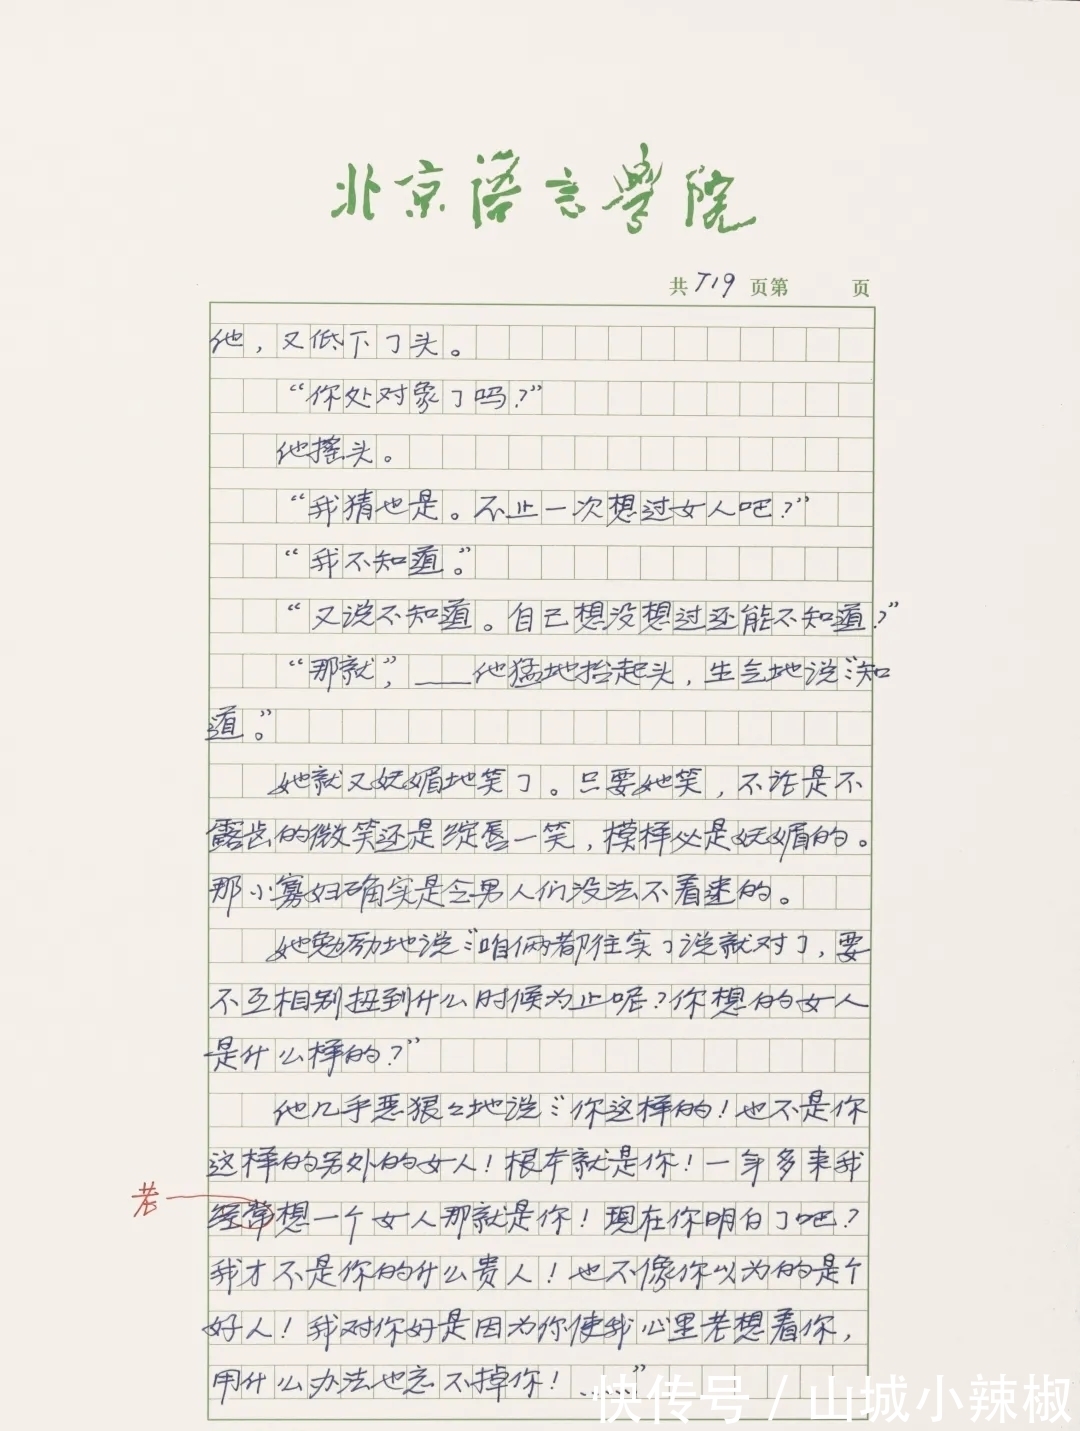 北京语言學院
共719页第 页
他，又低下了头。
“你处对象了吗？”
他摇头。
“我猜也是。不止一次想过女人吧？”
“我不知道。”
“又说不知道。自己想没想过还能不知道？”
“那就”，——他猛地抬起头，生气地说：“知
道。”
她就又妩媚地笑了。只要她笑，不论是不
露齿的微笑还是绽唇一笑，模样必是妩媚的。
那小寡妇确实是令男人们没法不着迷的。
她勉励地说：“咱俩都往实了说就对了，要
不互相别扭到什么时候为止呢？你想的女人
是什么样的？”
他几乎恶狠々地说：“你这样的！也不是你
这样的另外的女人！根本就是你！一年多来我
老
经常想一个女人那就是你！现在你明白了吧？
我才不是你的什么贵人！也不像你以为的是个
好人！我对你好是因为你使我心里老想着你，
用什么办法也忘不掉你！……”
快传号 / 山城小辣椒